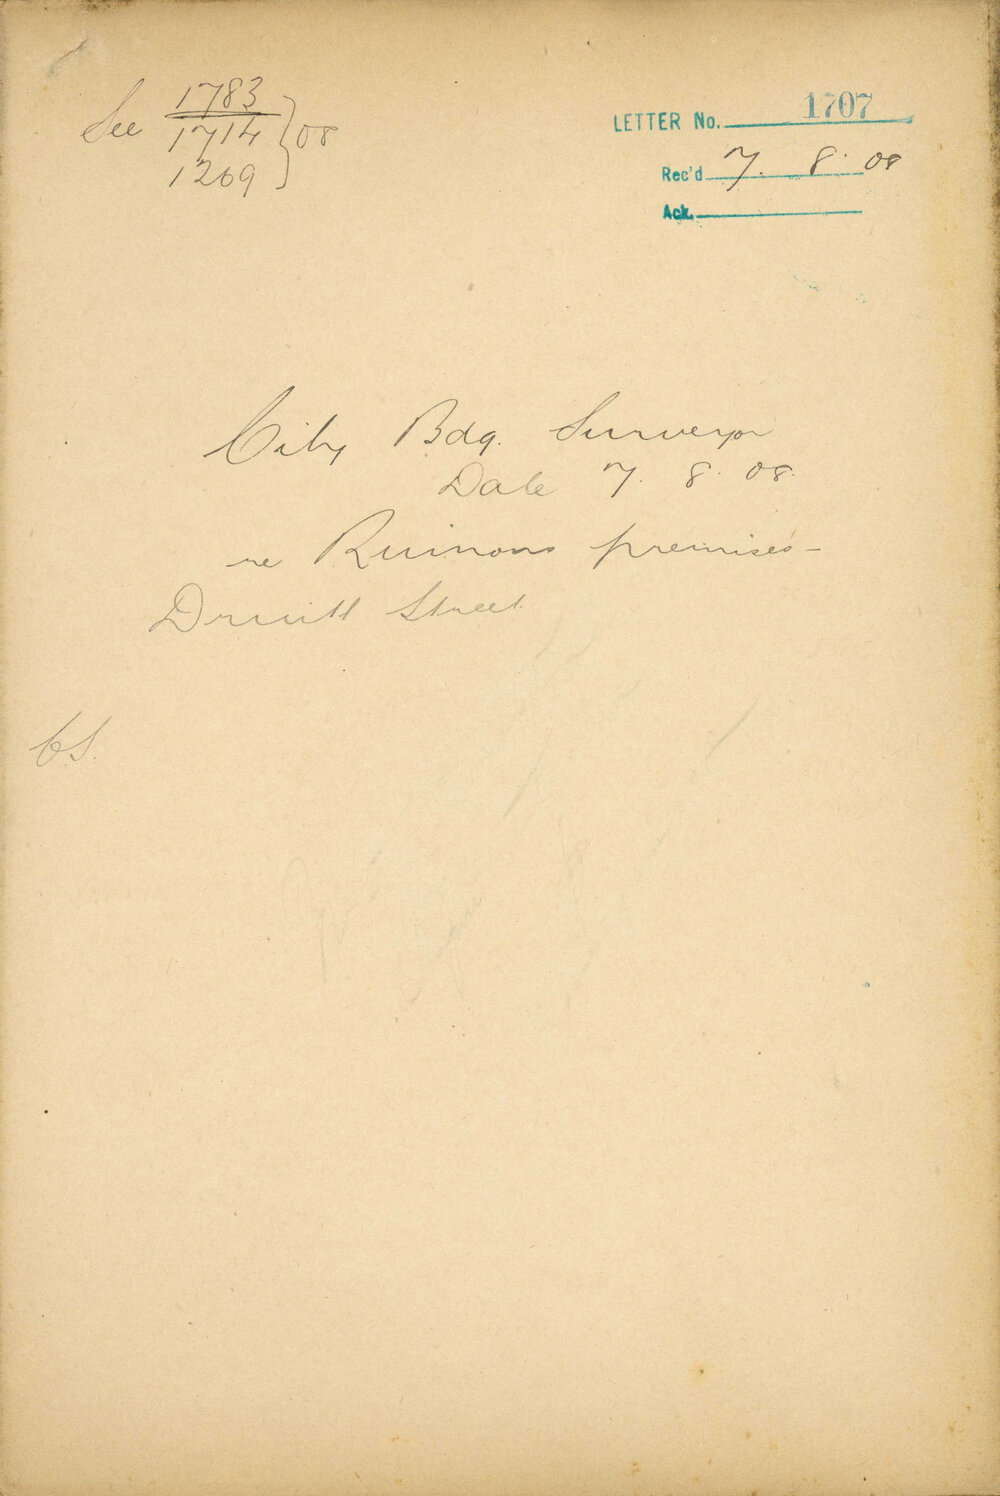 See 1783
1714 } 08
1269
LETTER No. 1707
Rec'd 7. 8. 08
Ack.
City Bdg. Surveyor
Date 7. 8. 08.
re Ruinous premises -
Druitt Street
C.S.